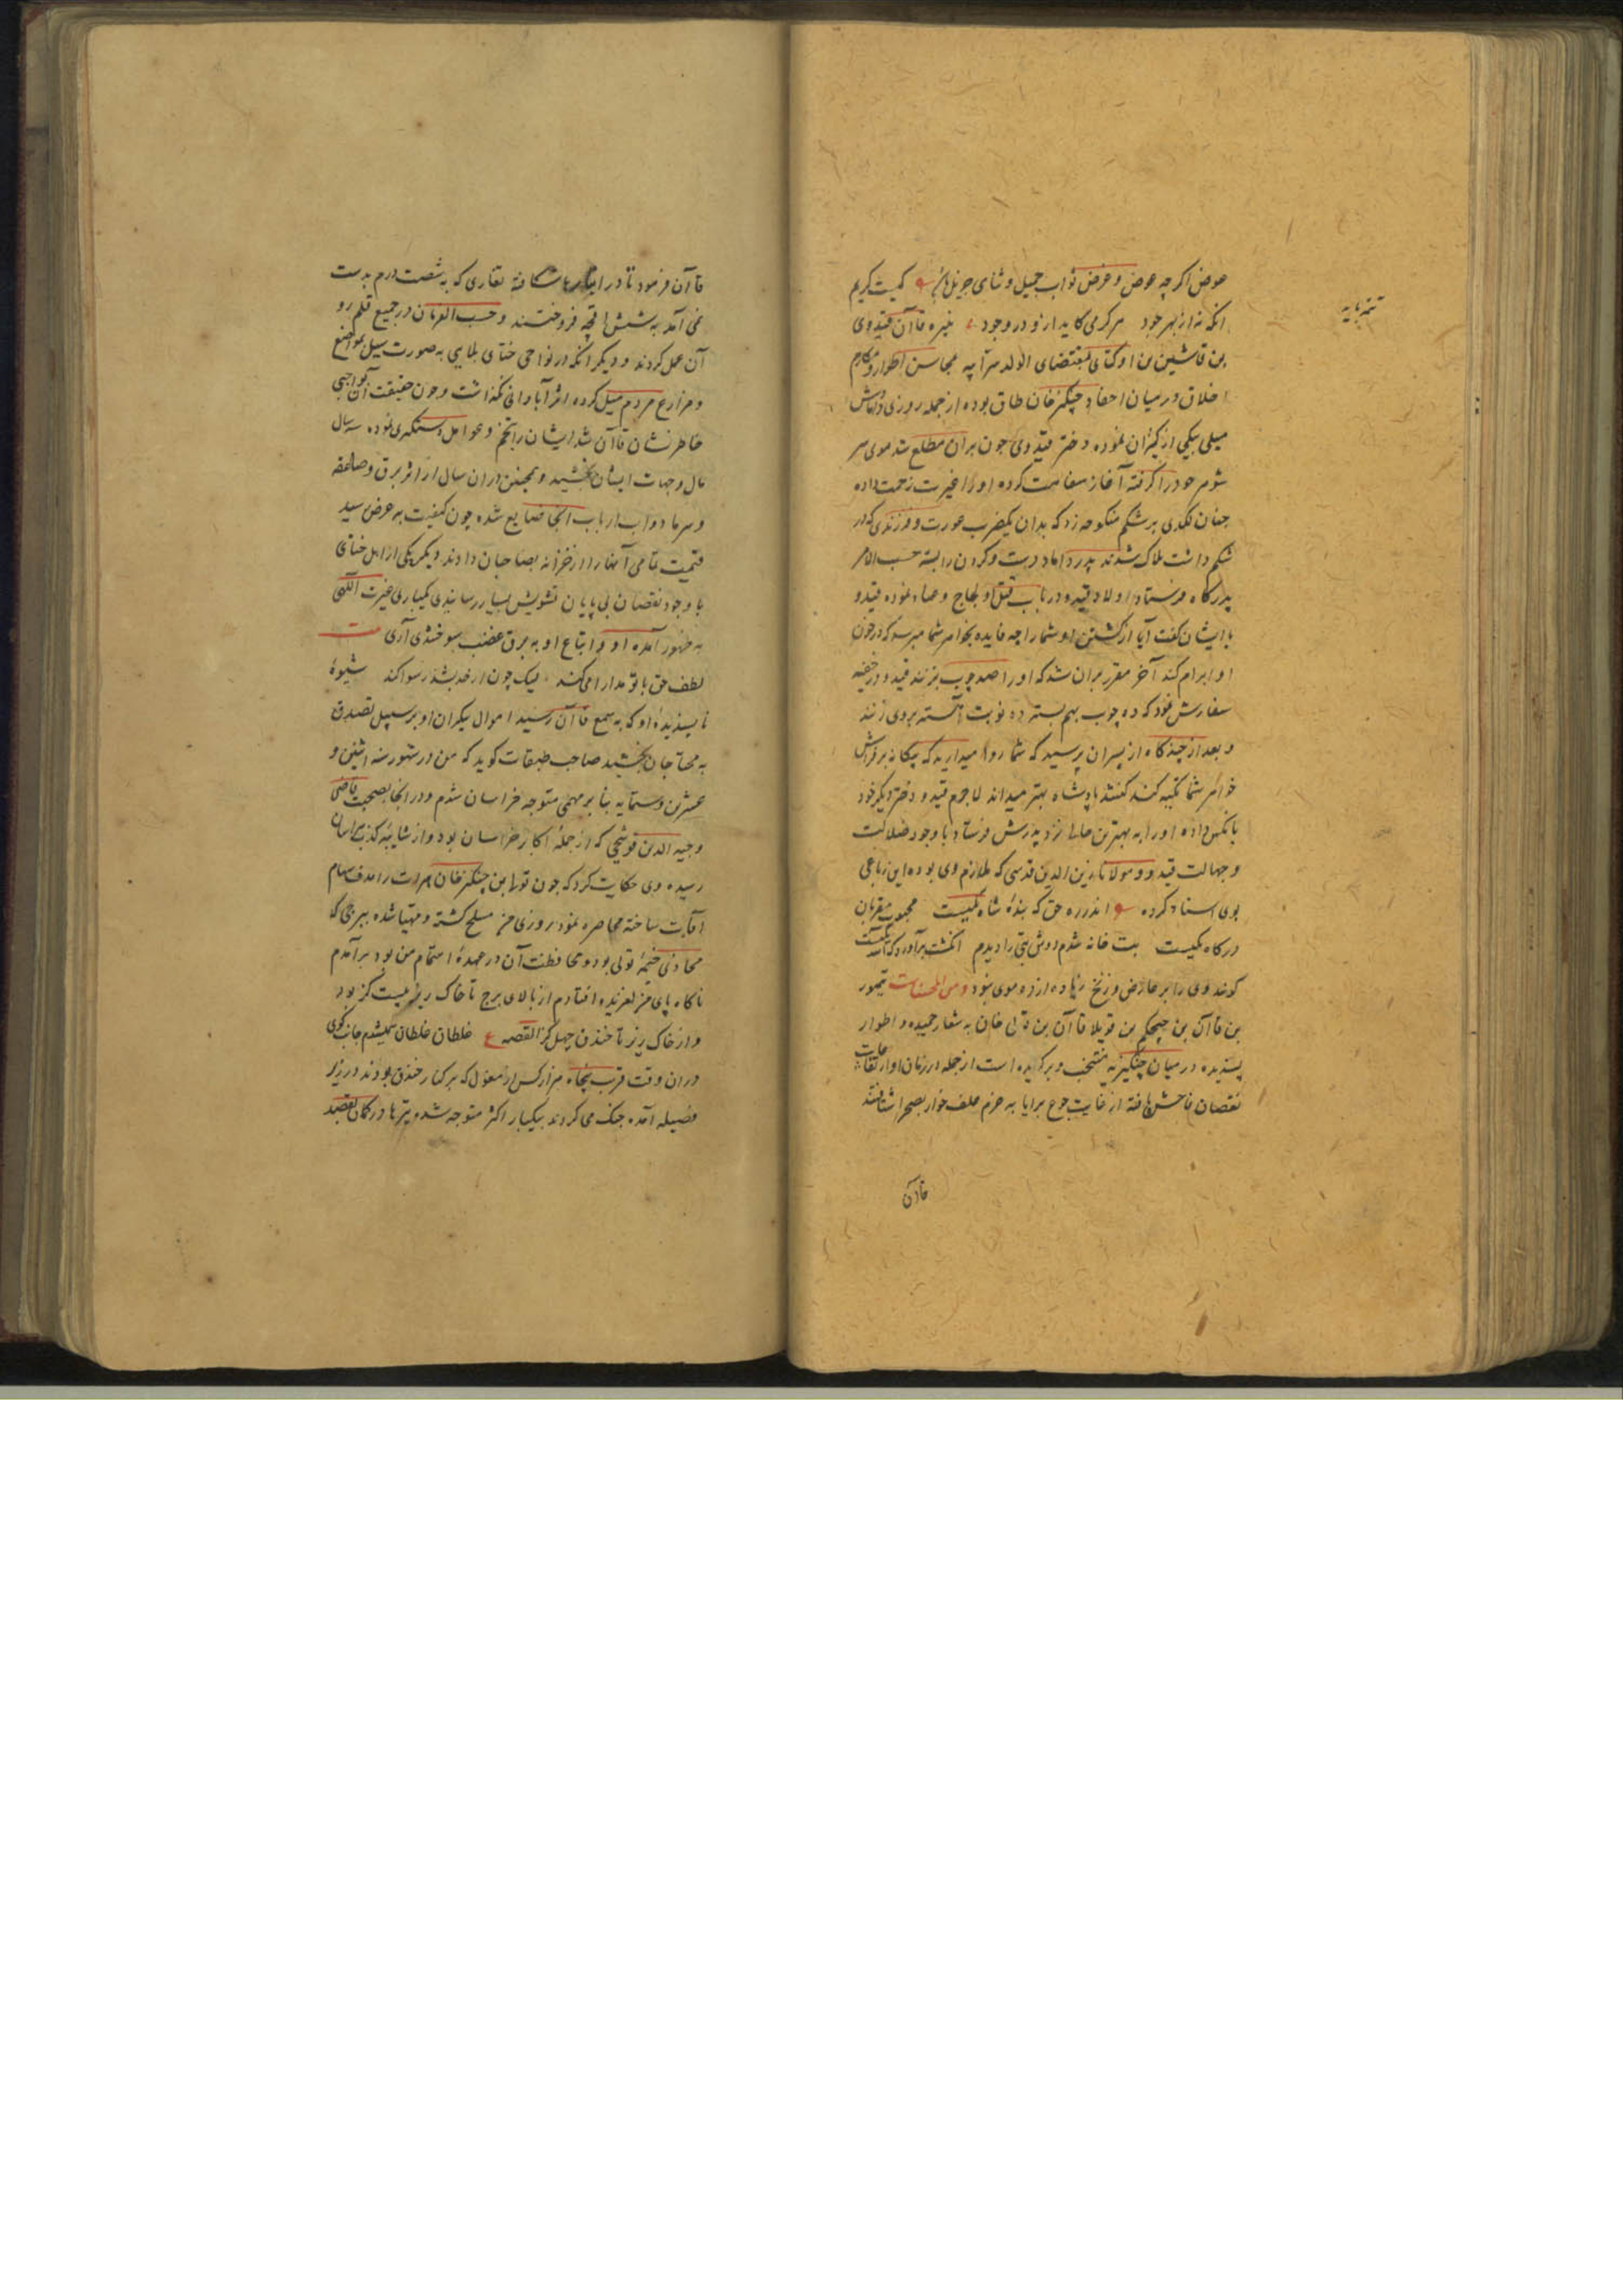 عوض اکرچه عوض و غرض ثواب جمیل و ثنای جزیل کیست کریم
انکه نه از بهر خود هر کرمی کاید ازو در وجود نبیره قاآن قیدوی
بن قاشین بن اوکتای بمقتضای الولد سر ابیه محاسن اطوار و مکارم
اخلاق در میان احفاد چنکیز خان طاق بوده از جمله روزی دامادش
میلی بیکی از کنیزان نموده دختر قیدوی چون بران مطلع شد موی سر
شوهر خود را کرفته آغاز سفاهت کرده او را غیرت زحمت داده
چنان لکدی بر شکم منکوحه زد که بدان یکضرب عورت و فرزندی که در
شکم داشت هلاک شدند پدر داماد دست و کردن را بسته حسب الامر
بدرکاه فرستاد اولاد قیدو در باب قتل او لجاج و عناد نموده قیدو
با ایشان کفت آیا از کشتن او شما را چه فایده بخواهر شما میرسد که در خون
او ابرام کنند آخر مقرر بران شد که او را صد چوب بزنند قیدو در خفیه
سفارش نمود که ده چوب بهم بسته ده نوبت آهسته بروی زنند
و بعد از چندکاه از پسران پرسید که شما روا میدارید که بیکانه بر فراش
خواهر شما تکیه کند کفتند پادشاه بهتر میداند لاجرم قیدو دختر دیکر خود
بانکس داده او را به بهترین حالی نزد پدرش فرستاد با وجود ضلالت
و جهالت قیدو و مولانا زین الدین قدسی که ملازم وی بوده این رباعی
بوی اسناد کرده اندر ره حق که بنده شاه یکیست محبوب مقربان
درکاه یکیست بت خانه شدم دوش بتی را دیدم انکشت برآورد که الله یکیست
کوید وی را بر عارض و زنخ زیاده از ده موی نبود و من المحسنات تیمور
بن قاآن بن چیمکیم بن قوبلا قاآن بن تولی خان به شعار حمیده و اطوار
پسندیده در میان چنکیزیه منتخب و برکزیده است از جمله در زمان او ارتفاعات
نقصان فاحش یافته از غایت جوع برایا به عزم علف خوار بصحرا شتافتند
قاآن
تتمه
قاآن فرمود تا در انبارها شکافته تغاری که به شصت درم بدست
نمی آمد به شش اقچه فروختند و حسب الفرمان در جمیع قلمرو
آن عمل کردند و دیکر انکه در نواحی ختای بلایی به صورت سیل بمواضع
و مزارع مردم میل کرده اثر آبادانی نکذاشت و چون حقیقت آن
خاطر نشان قاآن شد ایشان را بتخم و عوامل دستکیری نموده سه سال
مال و جهات ایشان بخشید و همچنین دران سال از اثر برق و صاعقه
و سرما دواب ارباب انجا ضایع شده چون کیفیت به عرض رسید
قیمت تمامی آنها را از خزانه بصاحبان دادند دیکر یکی از اهل ختای
با وجود نقصان بی پایان تشویش بسیار رسانیدی یکباری غیرت الهی
به ظهور آمده او و اتباع او به برق غضب سوختندی آری بیت
لطف حق با تو مداراها کند لیک چون از حد بشد رسوا کند شیوهٔ
ناپسندیدهٔ او که به سمع قاآن رسید اموال بیکران او بر سبیل تصدق
به محتاجان بخشید صاحب طبقات کوید که من در شهور سنه اثنین و
عشرین و ستمایه بنا بر مهمی متوجه خراسان شدم و در انجا بصحبت قاضی
وجیه الدین فوشنجی که از جملهٔ اکابر خراسان بود و از شایبهٔ کذب هراسان
رسیده وی حکایت کرد که چون تولی بن چنکیز خان هرات را هدف سهام
اقامت ساخته محاصره نمود روزی من مسلح کشته و مهیا شده ببرجی که
محاذی خیمهٔ تولی بود و محافظت آن در عهدهٔ اهتمام من بود برآمدم
ناکاه پای من لغزیده افتادم از بالای برج تا خاک ریز بیست کز بود
و از خاک ریز تا خندق چهل کز القصه ع غلطان غلطان همیشدم جانب کوی
دران وقت قرب پنجاه هزار کس از مغول که بر کنار خندق بودند در زیر
فصیله آمده جنک می کردند بیکبار اکثر متوجه شده تیرها در کمان بقصد